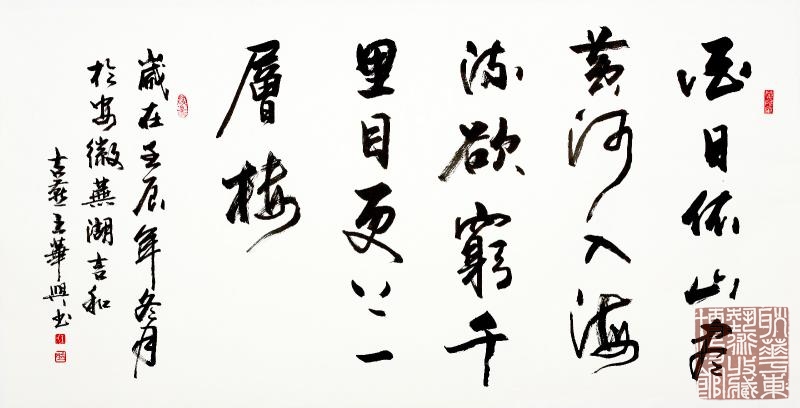 日依山尽
黄河入海
流欲窮千
里目更上一
層楼
歲在壬辰年冬月
於安徽蕪湖吉和
古燕王華興书